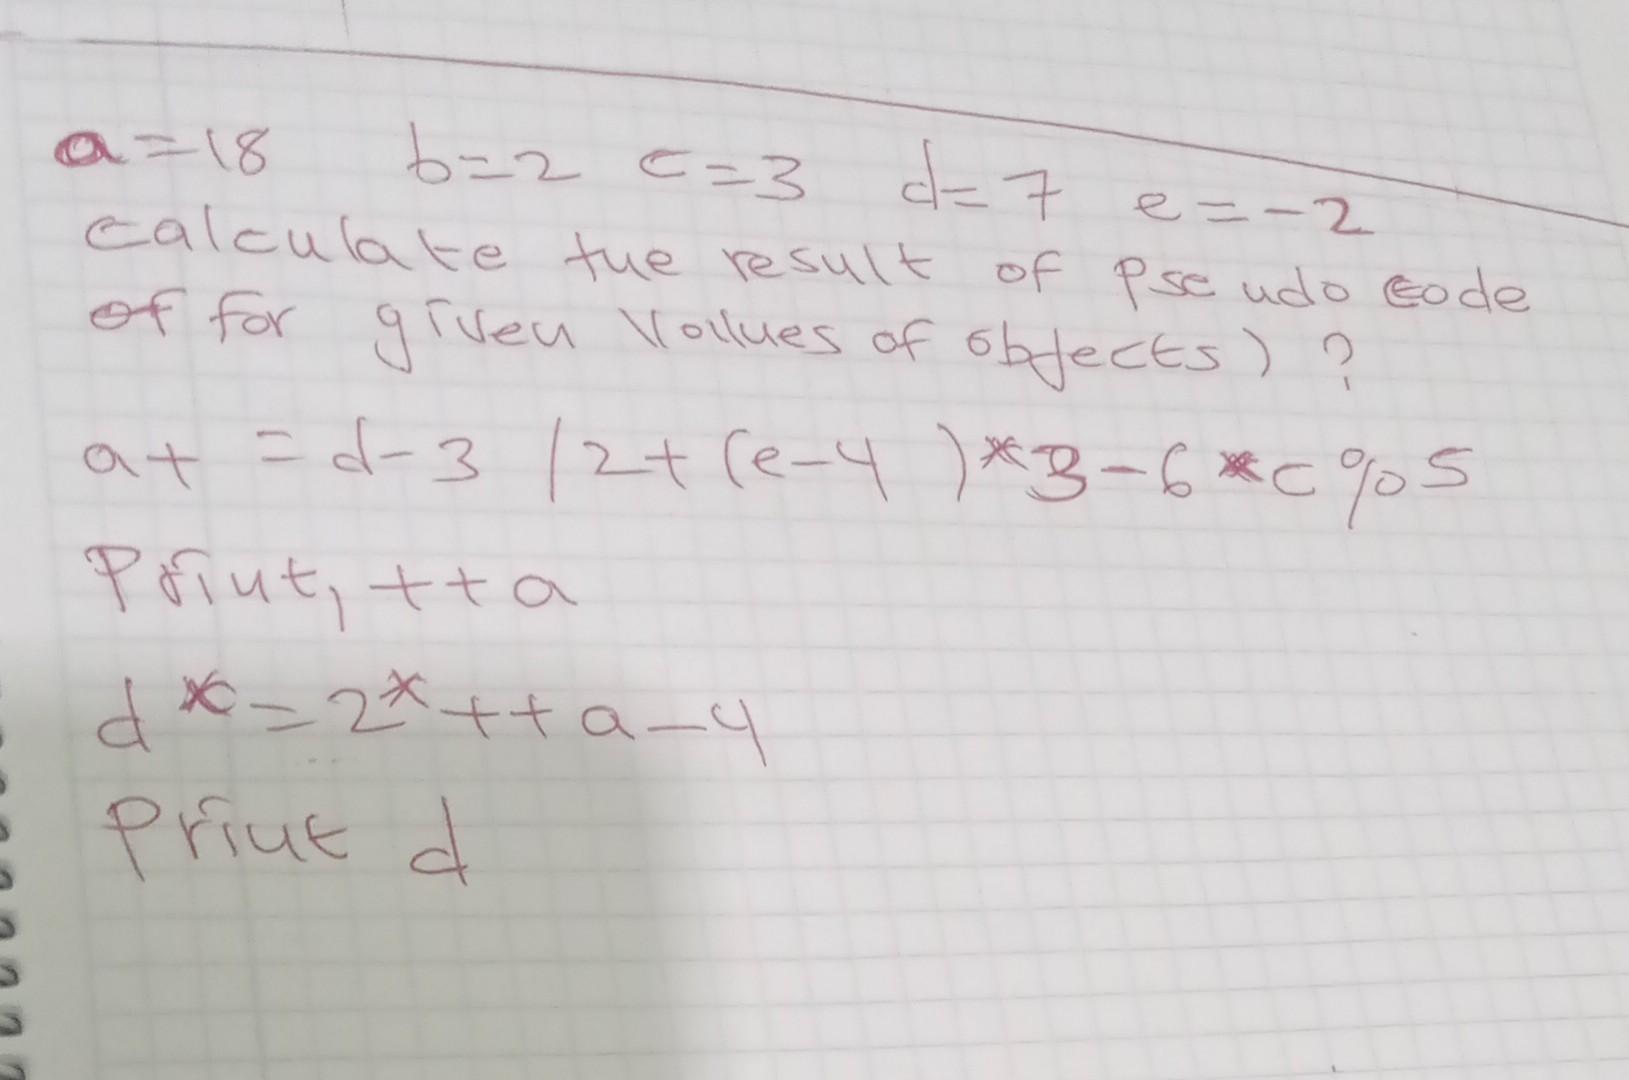 a=18 b=2 c=3 d=7 e=-2
calculate the result of pseudo code
of for given Vallues of objects) ?
a+ = d-3 /2+(e-4 )*3-6*c%5
Print, ++a
d*=2*++a-4
Print d